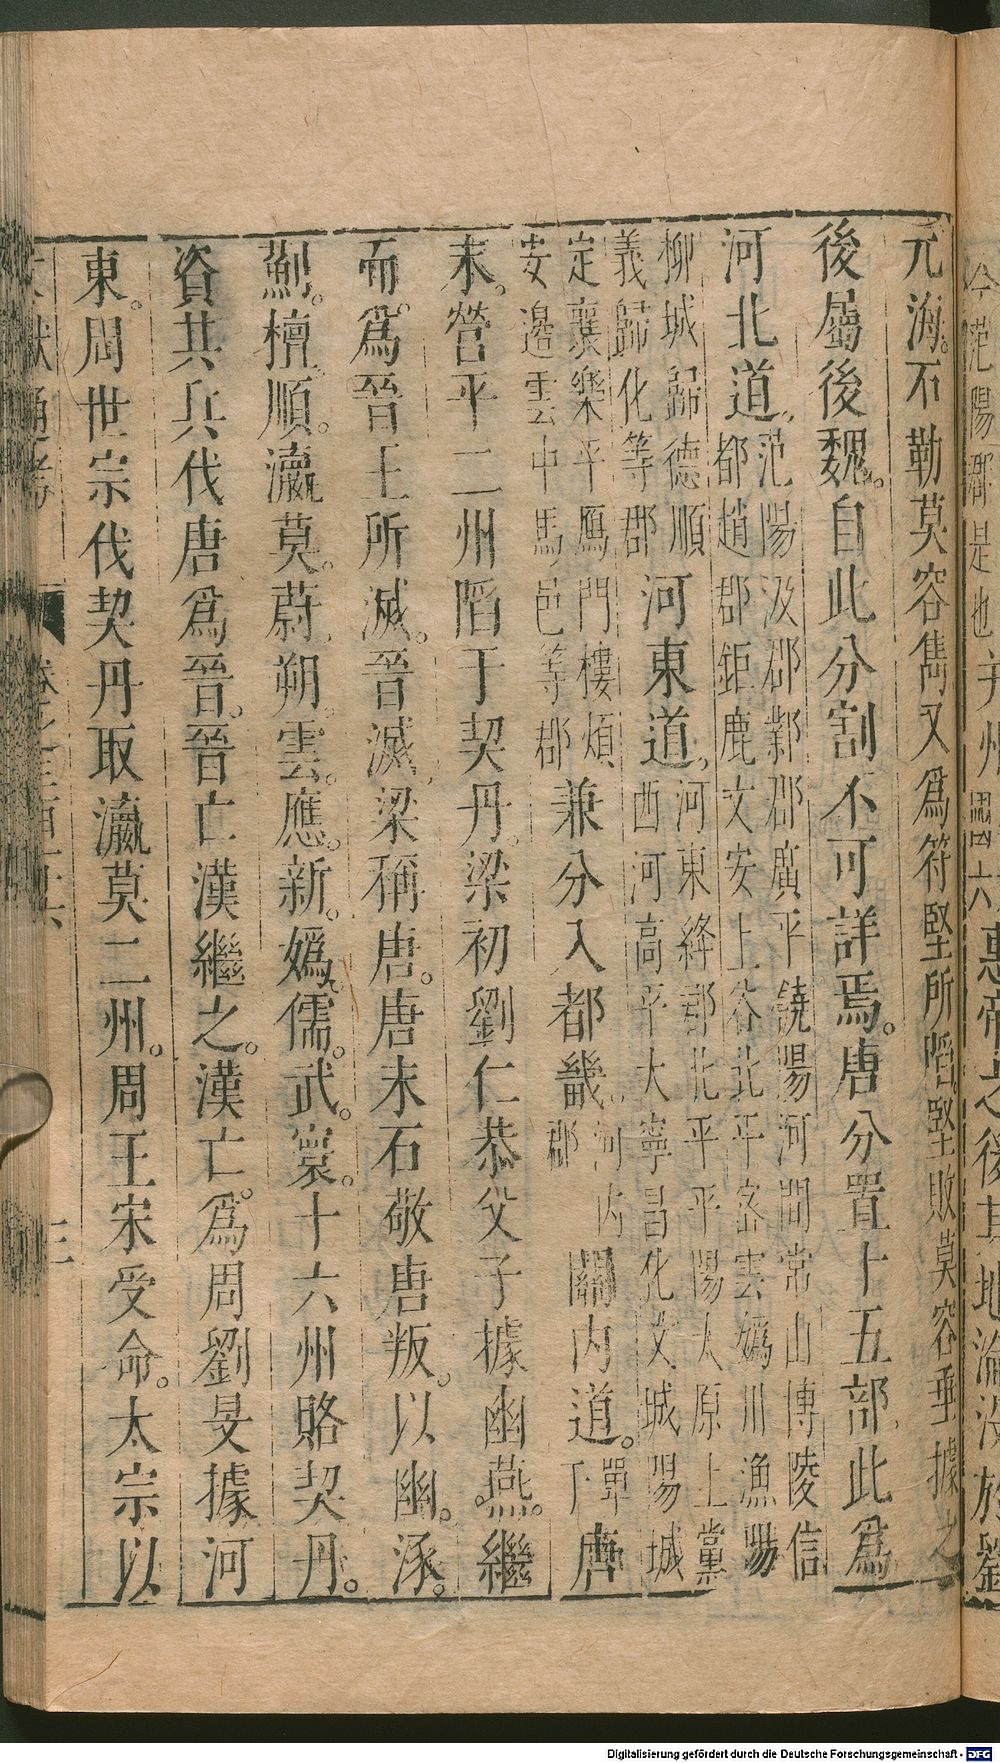 今范陽郡是也 并州 國六 惠帝之後其地淪沒於劉
元海。石勒慕容雋又爲符堅所陷。堅敗慕容垂據之
後屬後魏。自此分割不可詳焉。唐分置十五部此爲
河北道。范陽汲郡鄴郡廣平饒陽河間常山博陵信
都趙郡鉅鹿文安上谷北平密雲嬀川漁陽
柳城歸德順
義歸化等郡 河東道。河東絳郡北平平陽太原上黨
西河高平大寧昌化文城陽城
定襄樂平鴈門樓煩
安邊雲中馬邑等郡 兼分入都畿。河內
郡 關內道。單
于 唐
末。營平二州陷于契丹。梁初劉仁恭父子據幽燕。繼
而。爲晉王所滅。晉滅梁稱唐。唐末石敬唐叛。以幽。涿。
薊。檀。順。瀛。莫。蔚。朔。雲。應。新。嬀。儒。武。寰。十六州賂契丹。
資其兵代唐爲晉。晉亡漢繼之。漢亡。爲周劉旻據河
東。周世宗伐契丹取瀛莫二州。周王宋受命。太宗以
文獻通考 卷之三百十六 三